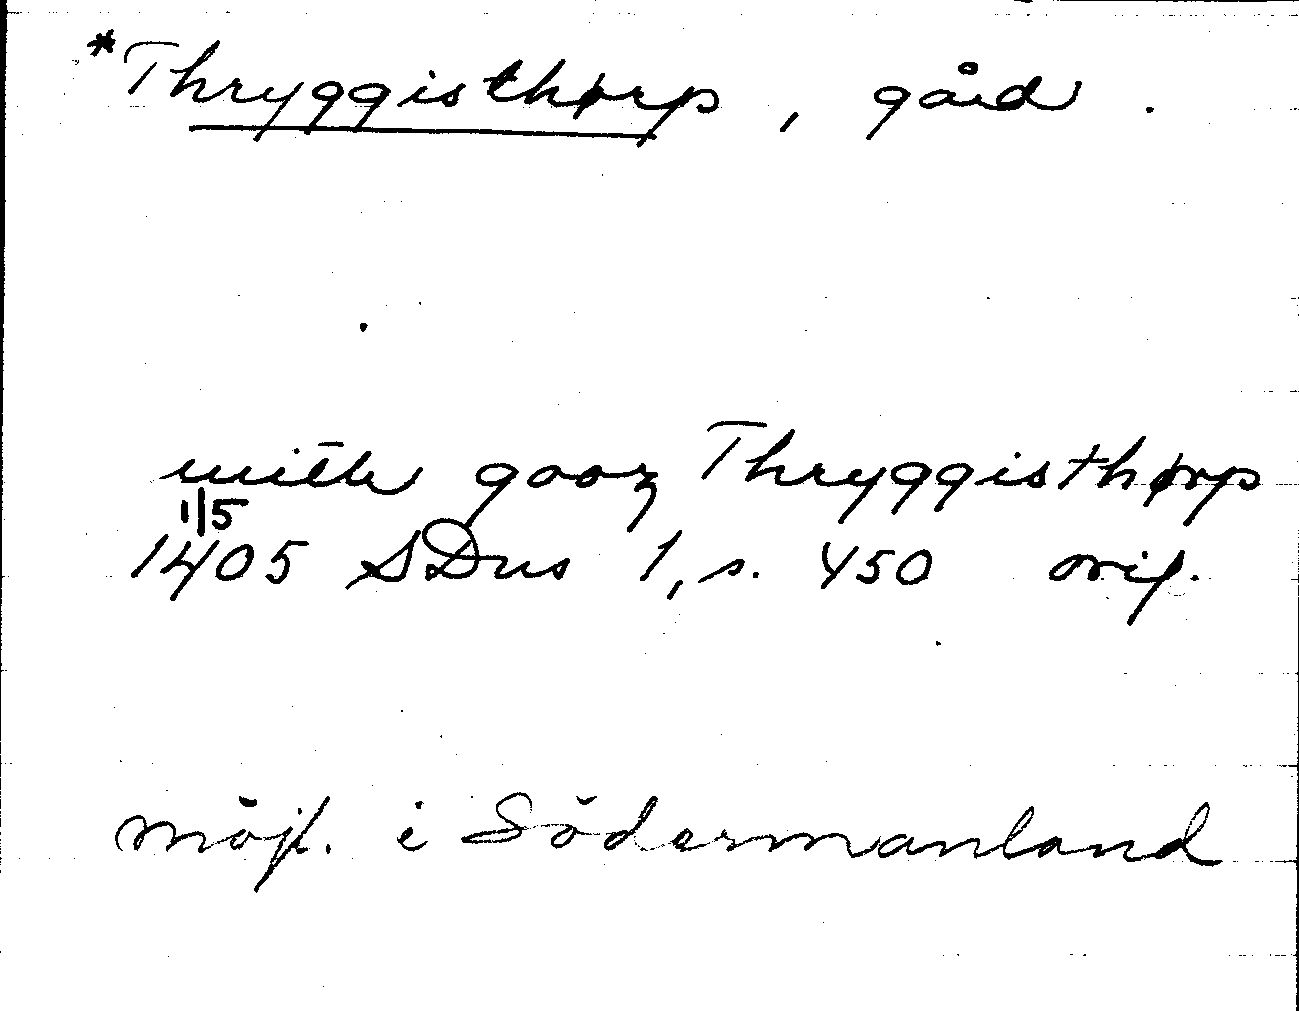 *Thryggisthørp, gård.
mitt gooz Thryggisthørp
1/5
1405 SDns 1, s. 450 orig.
möjl. i Södermanland